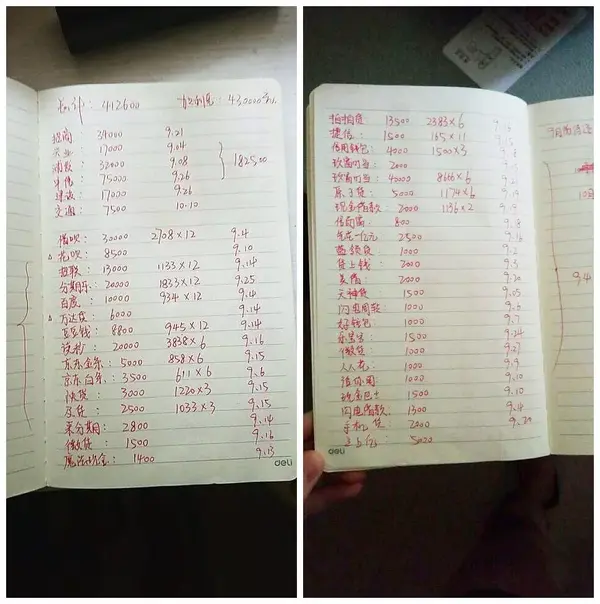 总计: 412600
加利息: 430000多
招商: 34000 9.21
兴业: 17000 9.04
浦发: 32000 9.08
中信: 75000 9.26
建设: 17000 9.26
交通: 7500 10.10
182500
借呗: 30000 2708×12 9.4
花呗: 8500 9.10
拍联: 13000 1133×12 9.14
分期乐: 20000 1833×12 9.25
百度: 10000 934×12 9.4
万达贷: 6000 9.14
豆豆钱: 8800 945×12 9.14
钱站: 20000 3838×6 9.16
京东金条: 5000 858×6 9.15
京东白条: 3500 611×6 9.6
快贷: 3000 1220×3 9.15
及贷: 2500 1033×3 9.15
来分期: 2800 9.14
微粒贷: 1500 9.16
魔法现金: 1400 9.13
deli
拍拍贷: 13500 2383×6
捷信: 1500 165×11
信用钱包: 4000 1500×3
玖富万卡: 2000
玖富万卡: 40000 8666×6 9.21
原子贷: 5000 1174×6 9.9
现金借款: 2000 1136×2 9.9
信而富: 800 9.18
先花一亿元 2500 9.16
蓝领贷: 1000 9.2
贷上钱: 2000 9.3
美借: 2000 9.20
天神贷: 1500 9.03
闪电周转: 1000 9.6
好钱包: 1000 9.7
1500 9.24
微贷: 1000 9.23
人人花: 1000 9.9
1000 9.10
现金巴士: 1500 9.10
闪电借款: 1300 9.4
手机贷: 2000 9.20
5000
deli